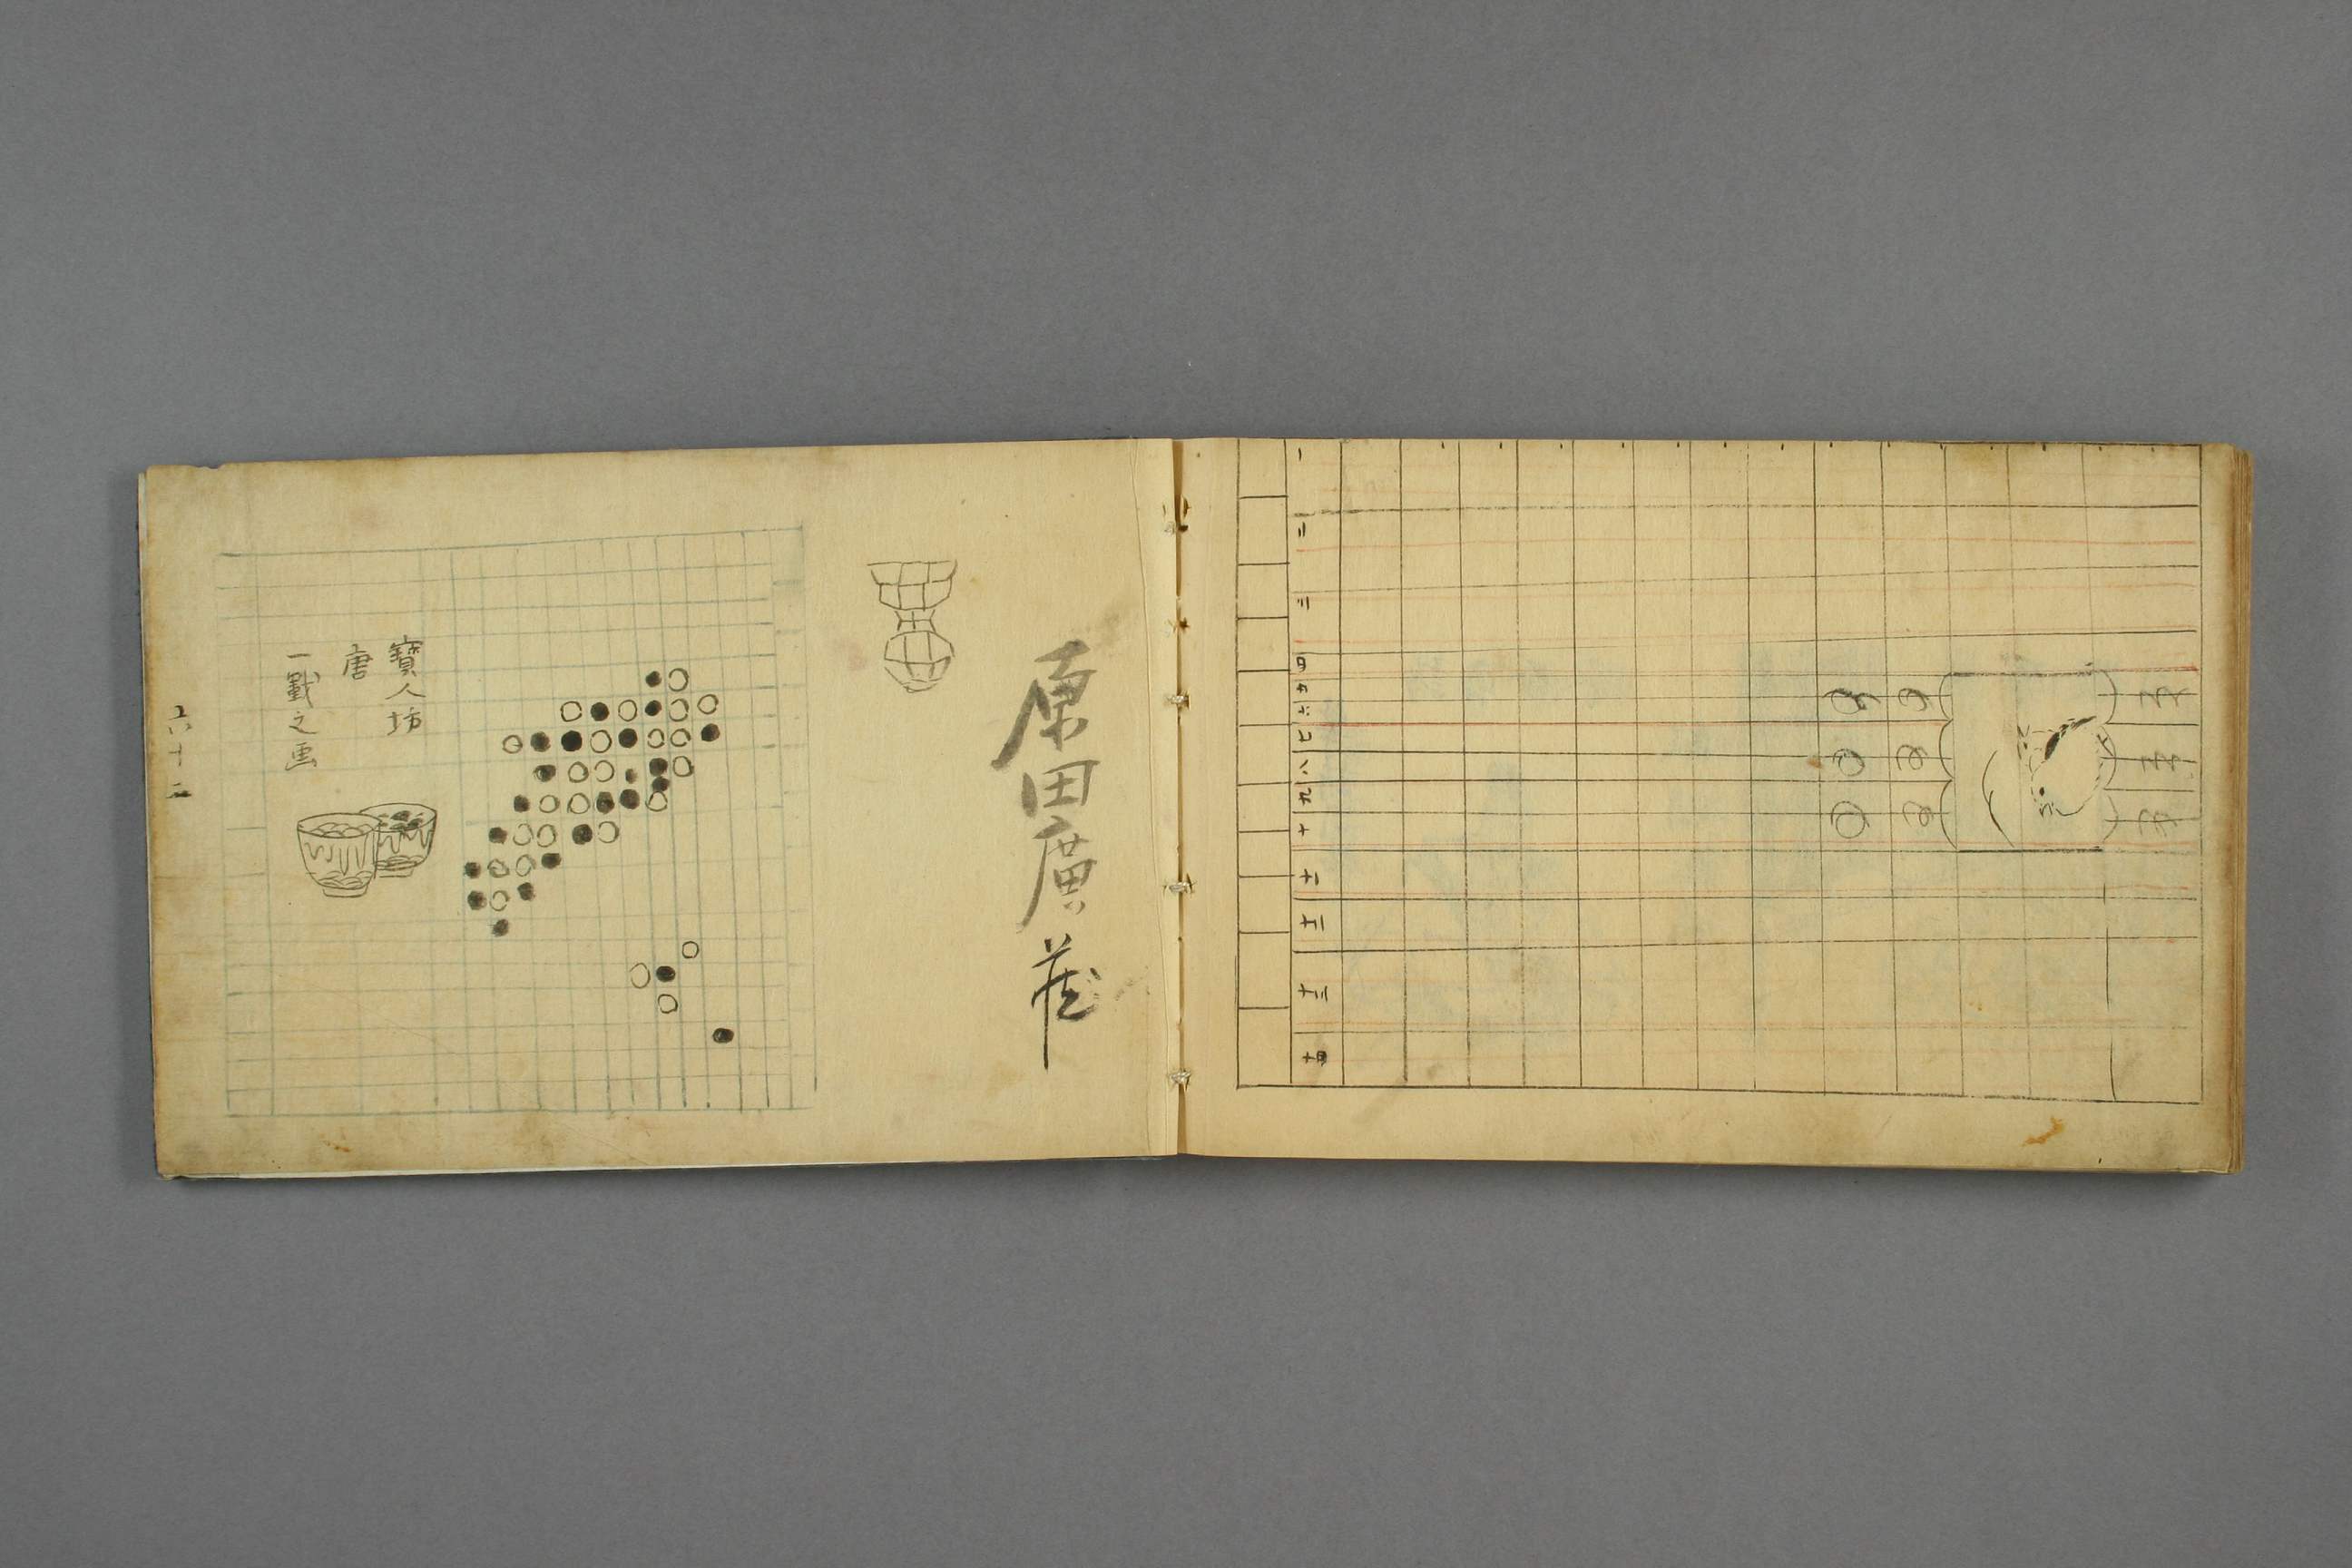 原田廣蔵
寶人坊
唐
一戰之画
六十二
一
二
三
四
五
六
七
八
九
十
十一
十二
十三
十四